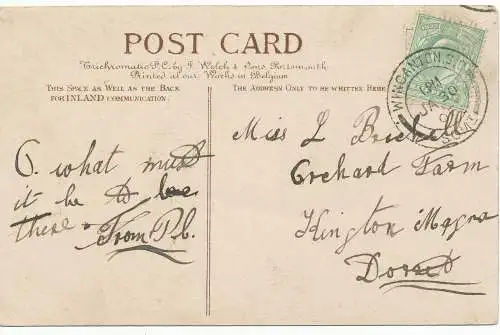 POST CARD
Trichromatic P.C. by J. Welch & Sons, Portsmouth
Printed at our Works in Belgium
THIS SPACE AS WELL AS THE BACK
FOR INLAND COMMUNICATION.
THE ADDRESS ONLY TO BE WRITTEN HERE
WINCANTON
O. what must
it be to be
there
From P.b.
Miss L
Orchard Farm
Kington Magna
Dorset